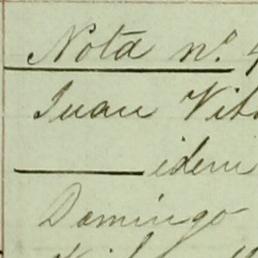 Nota n.º 4
Juan Vil
idem
Domingo